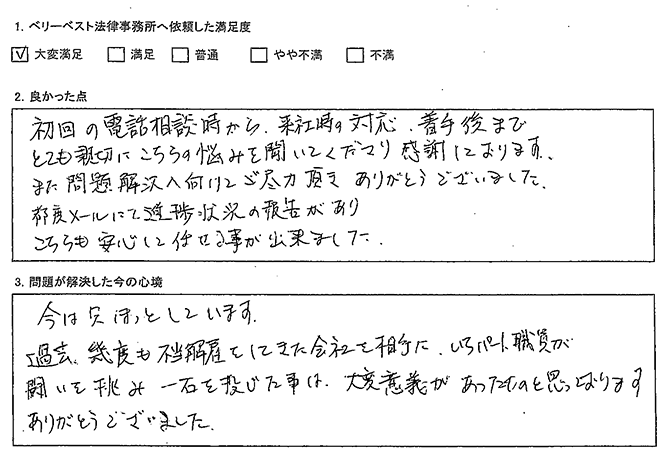 1. ベリーベスト法律事務所へ依頼した満足度
☑ 大変満足 □ 満足 □ 普通 □ やや不満 □ 不満
2. 良かった点
初回の電話相談時から、来社時の対応、着手後まで
とても親切にこちらの悩みを聞いてくださり感謝しております。
また問題解決へ向けてご尽力頂き ありがとうございました。
都度メールにて進捗状況の報告があり
こちらも安心して任せる事が出来ました。
3. 問題が解決した今の心境
今は一安心 ほっとしています。
過去、幾度も不当解雇をしてきた会社を相手に、いちパート職員が
闘いを挑み 一石を投じた事は、大変意義があったものと思っております
ありがとうございました。